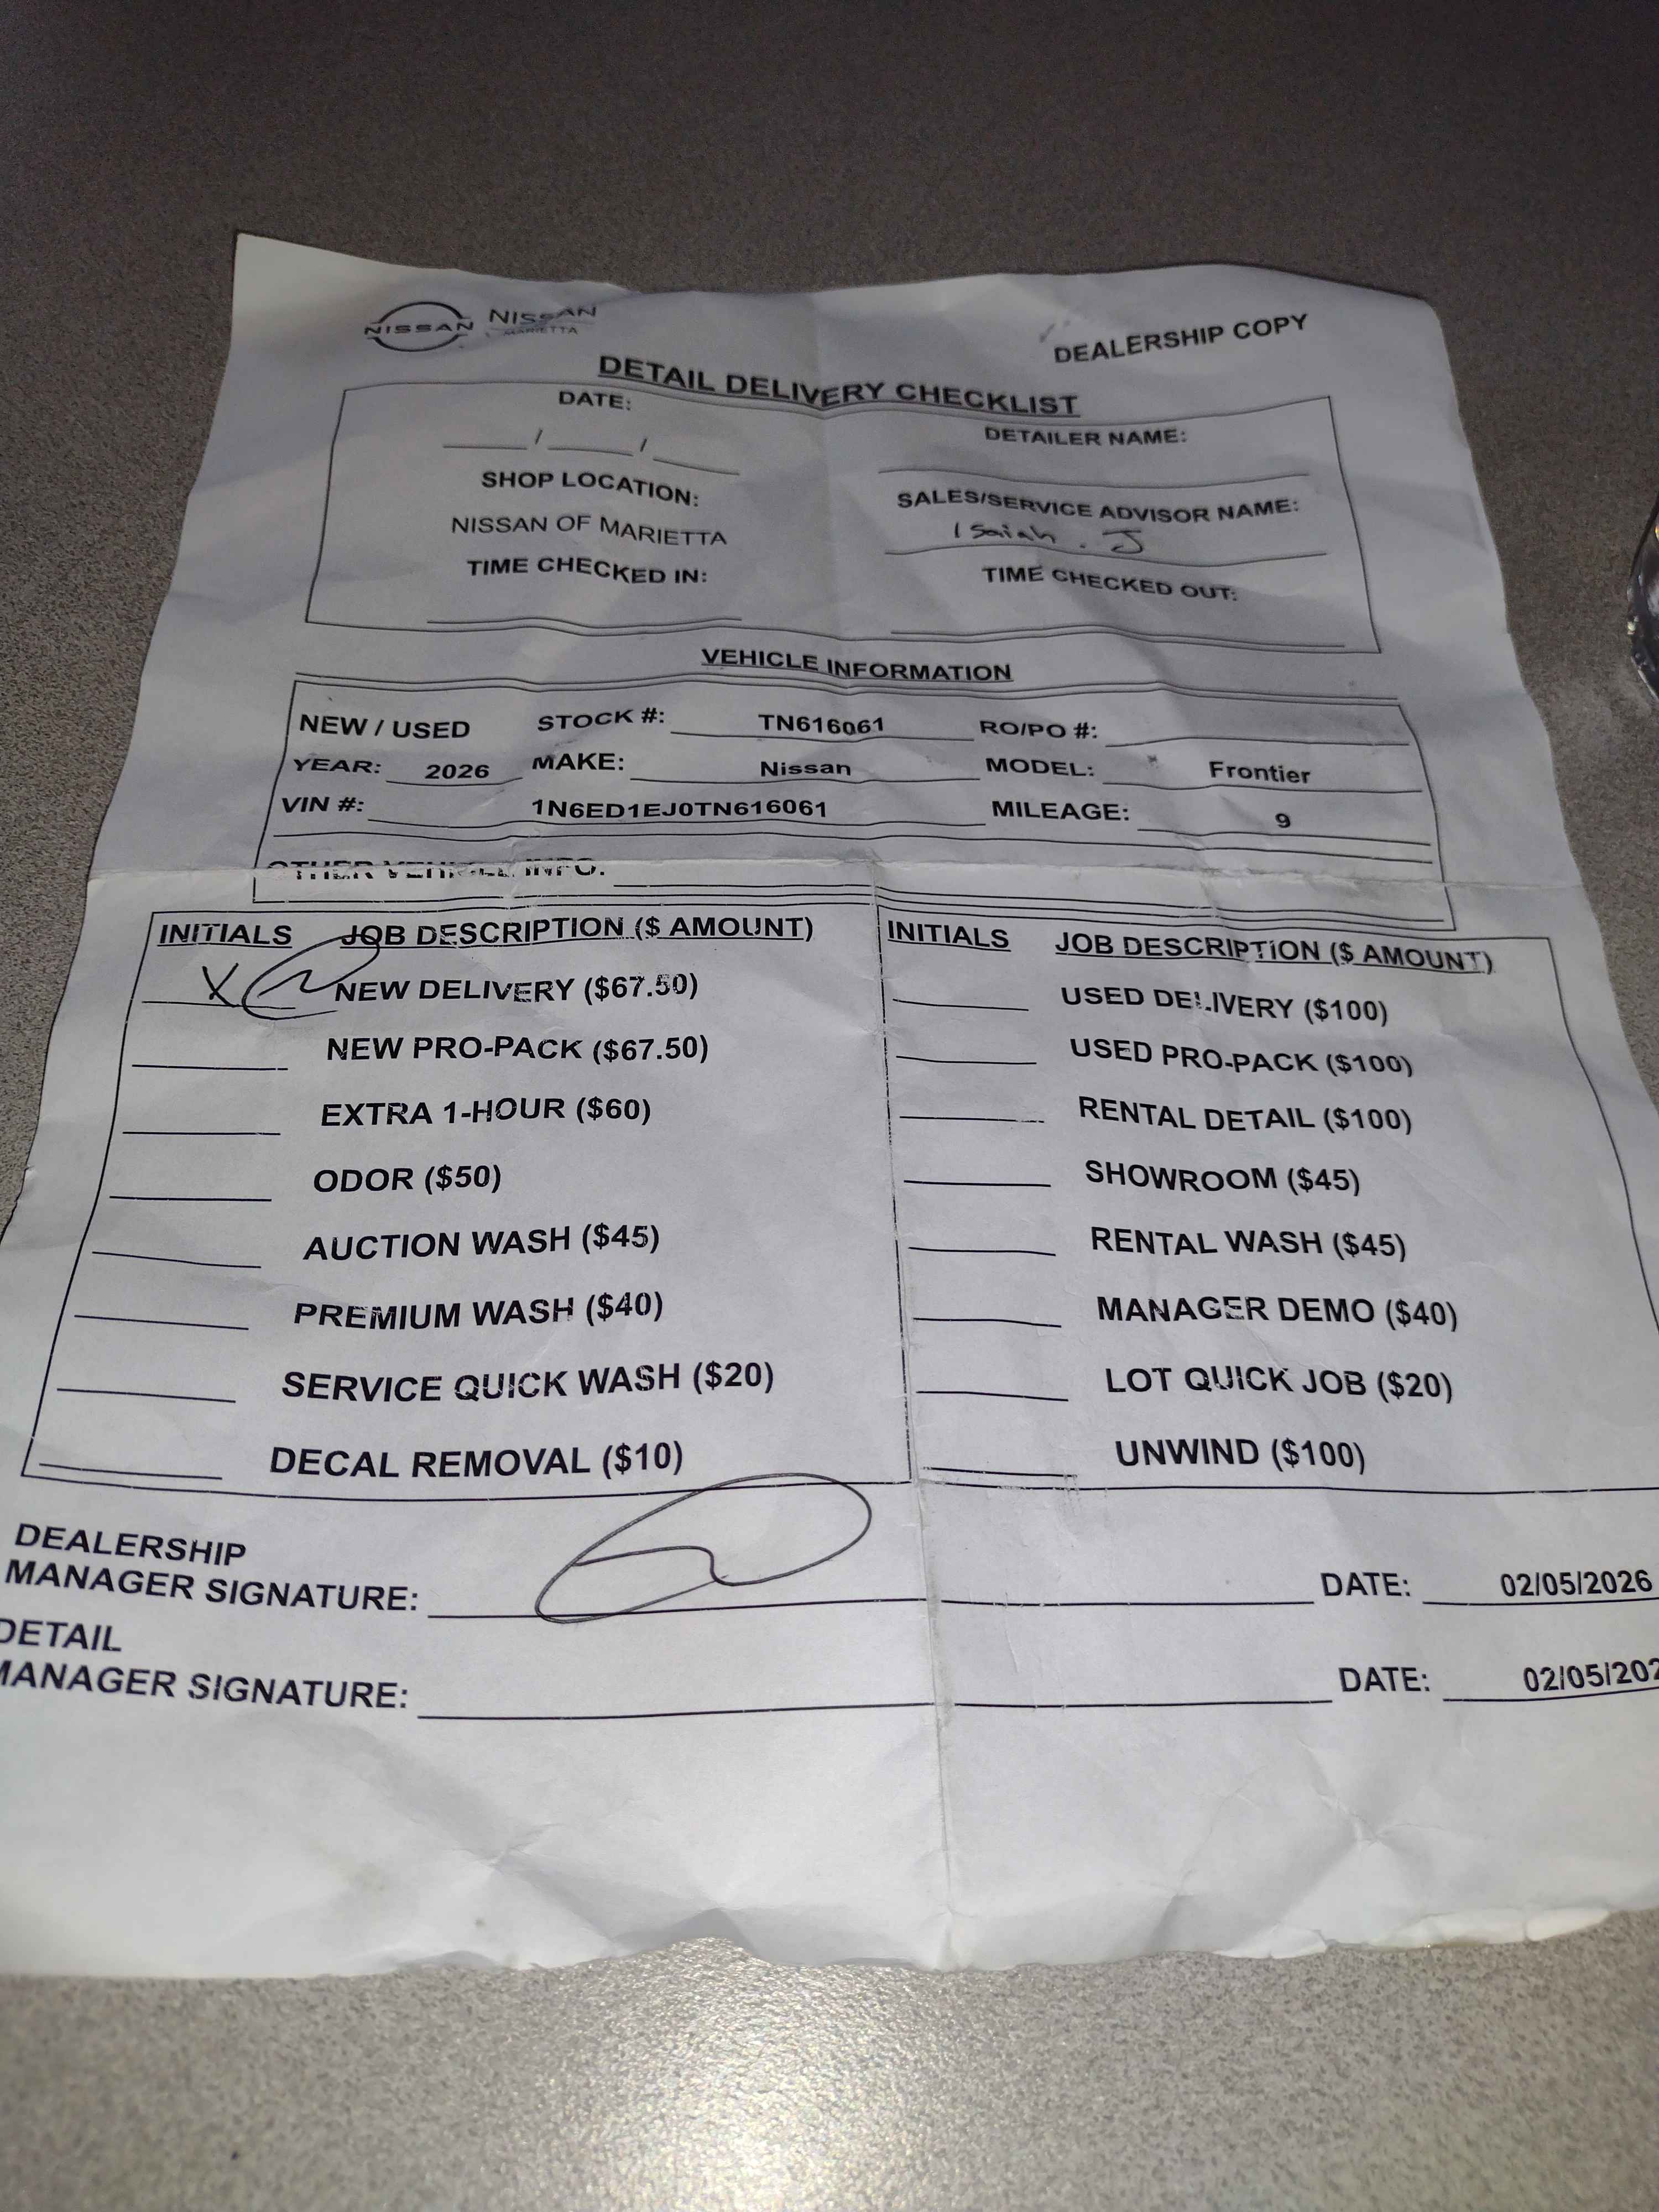 NISSAN NISSAN
MARIETTA
DEALERSHIP COPY
DETAIL DELIVERY CHECKLIST
DATE:
/ /
DETAILER NAME:
SHOP LOCATION:
NISSAN OF MARIETTA
SALES/SERVICE ADVISOR NAME:
Isaiah . J
TIME CHECKED IN:
TIME CHECKED OUT:
VEHICLE INFORMATION
NEW / USED STOCK #: TN616061 RO/PO #:
YEAR: 2026 MAKE: Nissan MODEL: Frontier
VIN #: 1N6ED1EJ0TN616061 MILEAGE: 9
OTHER VEHICLE INFO.
INITIALS JOB DESCRIPTION ($ AMOUNT) INITIALS JOB DESCRIPTION ($ AMOUNT)
X NEW DELIVERY ($67.50) USED DELIVERY ($100)
NEW PRO-PACK ($67.50) USED PRO-PACK ($100)
EXTRA 1-HOUR ($60) RENTAL DETAIL ($100)
ODOR ($50) SHOWROOM ($45)
AUCTION WASH ($45) RENTAL WASH ($45)
PREMIUM WASH ($40) MANAGER DEMO ($40)
SERVICE QUICK WASH ($20) LOT QUICK JOB ($20)
DECAL REMOVAL ($10) UNWIND ($100)
DEALERSHIP
MANAGER SIGNATURE: DATE: 02/05/2026
DETAIL
MANAGER SIGNATURE: DATE: 02/05/202